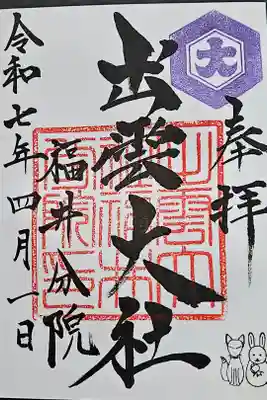 奉拝
大
出雲大社
福井分院
令和七年四月一日